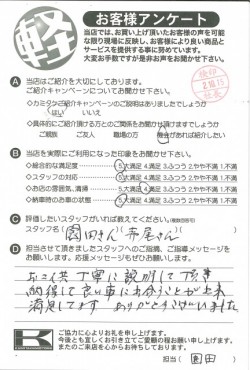 軽
お客様アンケート
当店では、お買い上げ頂いたお客様の声を可能
な限り現場に反映し、お客様により良い商品と
サービスを提供する事に努めています。
大変お手数ですが是非お声をお聞かせ下さい。
A 当店はご紹介を大切にしております。
ご紹介キャンペーンについてお聞かせ下さい。
◇カミタケご紹介キャンペーンのご説明はありましたでしょうか
はい いいえ
◇具体的にご紹介頂ける方とのご関係をお聞かせ頂けますでしょうか
ご親族 ご友人 職場の方 機会があれば紹介したい
B 当店を実際にご利用になった印象をお聞かせ下さい。
◇総合的な満足度 5大満足 4満足 3ふつう 2やや不満 1不満
◇スタッフの対応 5大満足 4満足 3ふつう 2やや不満 1不満
◇お店の雰囲気、清掃 5大満足 4満足 3ふつう 2やや不満 1不満
◇納車時のお車の状態 5大満足 4満足 3ふつう 2やや不満 1不満
C 評価したいスタッフがいれば教えてください。(複数回答可)
スタッフ名( 園田さん 赤尾さん )
D 担当させて頂きましたスタッフへのご指摘、ご指導メッセージを
お願いします。応援メッセージもぜひお願いします。
お二人共丁寧に説明して頂き
納得して良い車に出会うことが出来
満足してます ありがとうございました
K
ご協力に心よりお礼を申し上げます。
今後とも宜しくお引き立てご愛顧の程お願い申し上げます。
またのご来店を心からお待ちしております。
担当( 園田 )